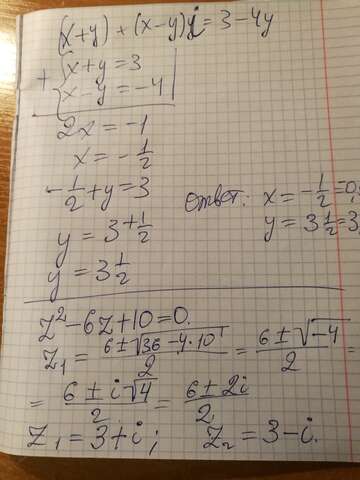 (x+y) + (x-y)i = 3-4y
+ { x+y=3
x-y=-4
2x=-1
x=-1/2
-1/2+y=3
Ответ: x=-1/2=0,
y=3+1/2
y=3 1/2=3,
y=3 1/2
z²-6z+10=0.
z₁=(6±√(36-4·10))/2=(6±√-4)/2=
=(6±i√4)/2=(6±2i)/2
z₁=3+i; z₂=3-i.